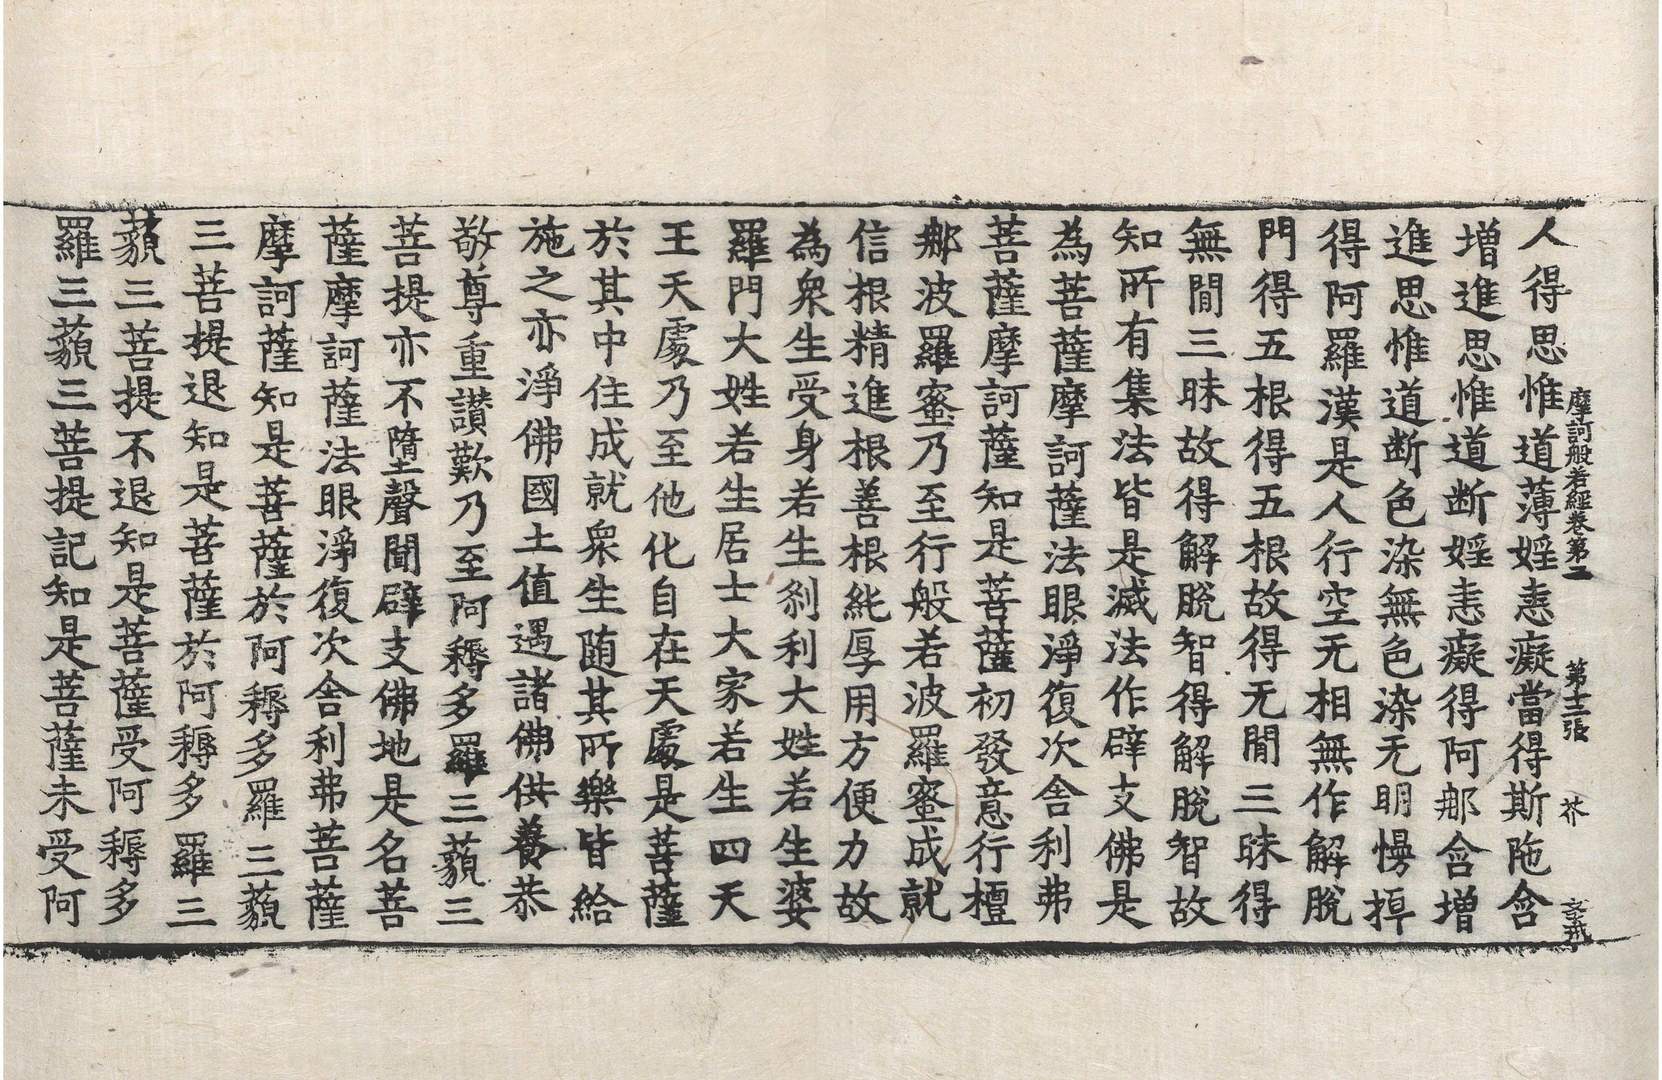 摩訶般若經卷第二 第十二張 芥
人得思惟道薄婬恚癡當得斯陁含
增進思惟道断婬恚癡得阿那含增
進思惟道断色染無色染无明慢掉
得阿羅漢是人行空无相無作解脫
門得五根得五根故得无閒三昧得
無閒三昧故得解脫智得解脫智故
知所有集法皆是滅法作辟支佛是
為菩薩摩訶薩法眼淨復次舍利弗
菩薩摩訶薩知是菩薩初發意行檀
那波羅蜜乃至行般若波羅蜜成就
信根精進根善根純厚用方便力故
為眾生受身若生剎利大姓若生婆
羅門大姓若生居士大家若生四天
王天處乃至他化自在天處是菩薩
於其中住成就眾生随其所樂皆給
施之亦淨佛國土值遇諸佛供養恭
敬尊重讃歎乃至阿耨多羅三藐三
菩提亦不墮聲聞辟支佛地是名菩
薩摩訶薩法眼淨復次舍利弗菩薩
摩訶薩知是菩薩於阿耨多羅三藐
三菩提退知是菩薩於阿耨多羅三
藐三菩提不退知是菩薩受阿耨多
羅三藐三菩提記知是菩薩未受阿